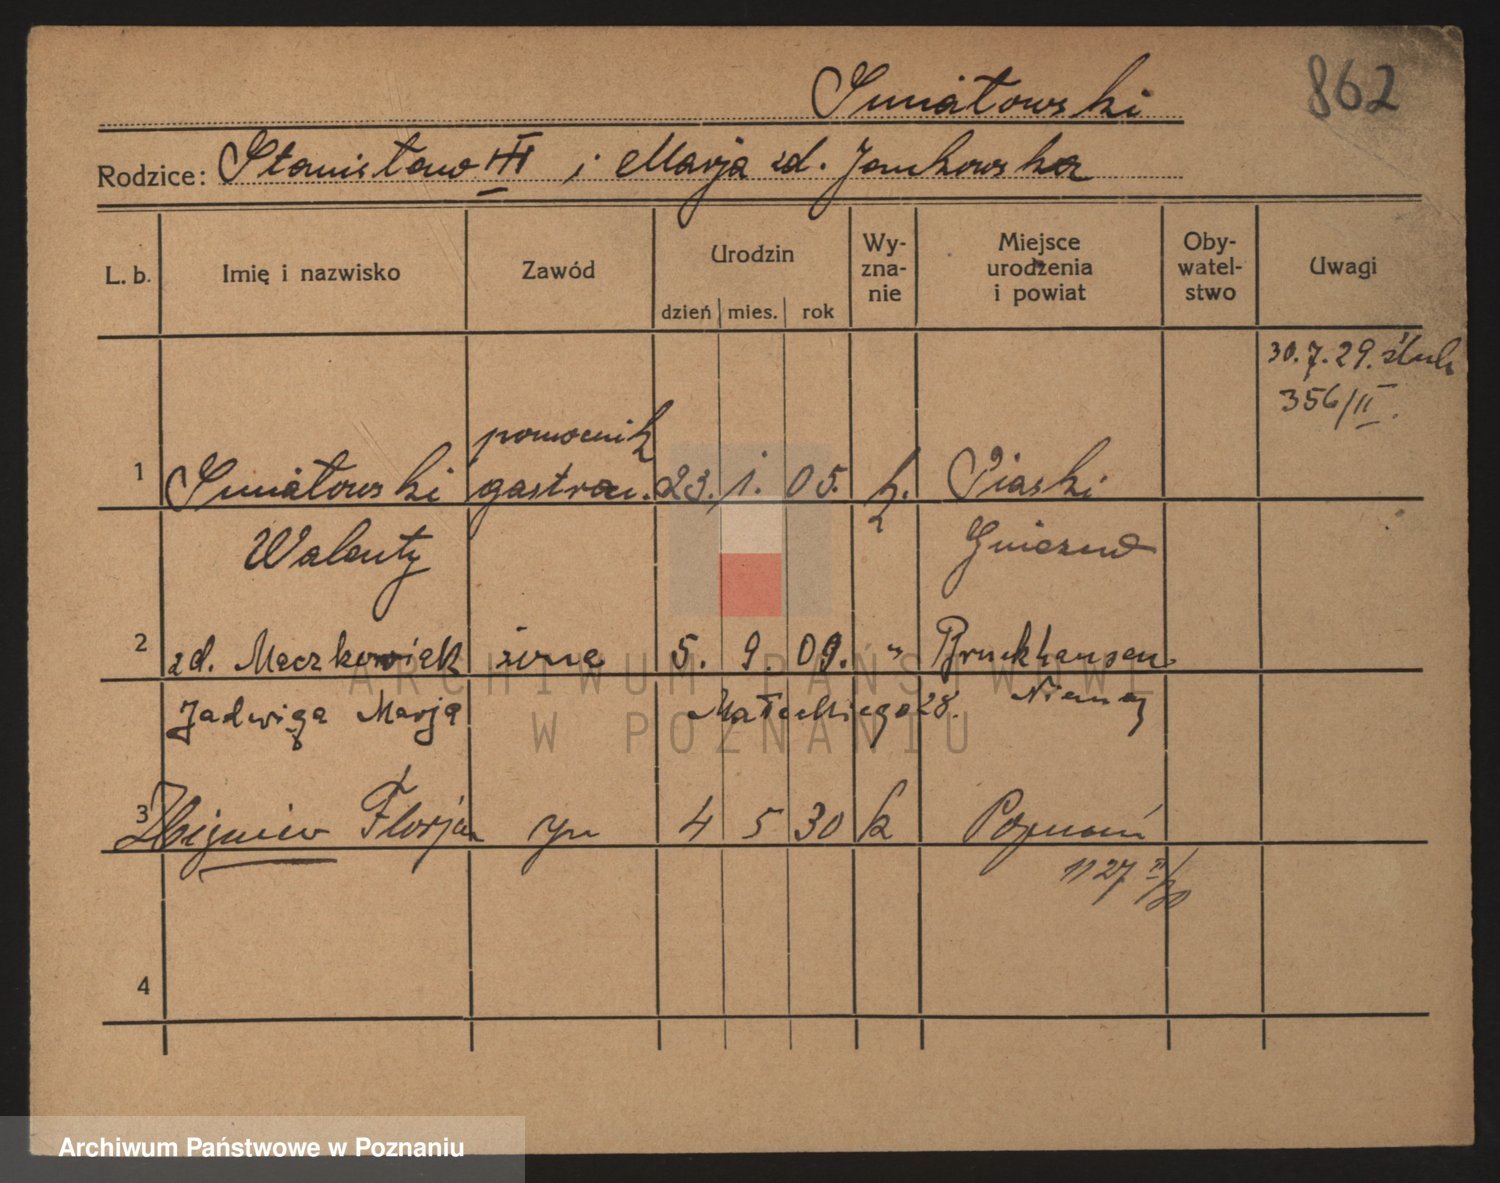 862
Smiatowski
Rodzice: Stanisław III i Marja zd. Jankowska
L. b. Imię i nazwisko Zawód Urodzin dzień mies. rok Wy-zna-nie Miejsce urodzenia i powiat Oby-watel-stwo Uwagi
30.7.29. ślub
356/II.
pomocnik
1 Smiatowski gastron. 23. 1. 05. k. Piaski
Walenty Gniezno
2 zd. Maczkowiak żona 5. 9. 09. " Bruckhausen
Jadwiga Marja Małeckiego 28. Niemcy
3 Zbigniew Florjan syn 4 5 30 k Poznań
1127 II/30
4
ARCHIWUM PAŃSTWOWE
W POZNANIU
Archiwum Państwowe w Poznaniu